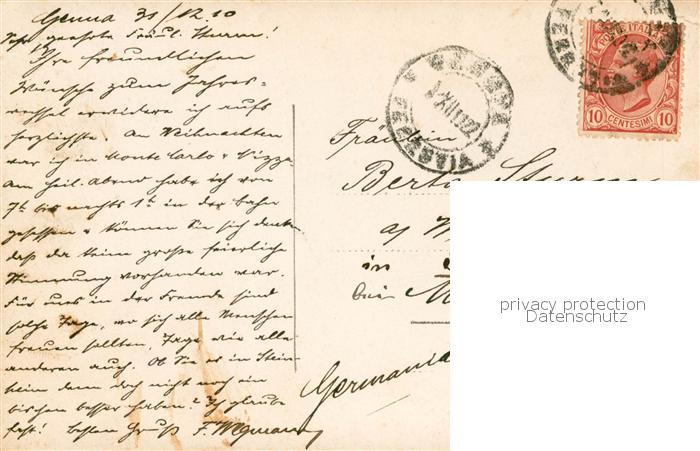 Genua 31/12.10
Sehr geehrte Fräul. Sturm!
Ihre freundlichen
Wünsche zum Jahres-
wechsel erwidere ich aufs
herzlichste. An Weihnachten
war ich in Monte Carlo & Nizza.
Am heil. Abend habe ich von
7h bis nachts 1h in der Bahn
gesessen & können Sie sich denken
daß da keine große feierliche
Stimmung vorhanden war.
Für uns in der Fremde sind
solche Tage, wo sich alle Menschen
freuen sollten, Tage wie alle
anderen auch. Ob Sie es in Stein-
heim denn doch nicht noch ein
bischen besser haben? Ich glaube
fast! besten Gruß F. Wegmann
GENOVA
FERROVIA
POSTE ITALIANE
10 CENTESIMI 10
Fräulein
Berta Sturm
a/
in
bei
Germania
privacy protection
Datenschutz